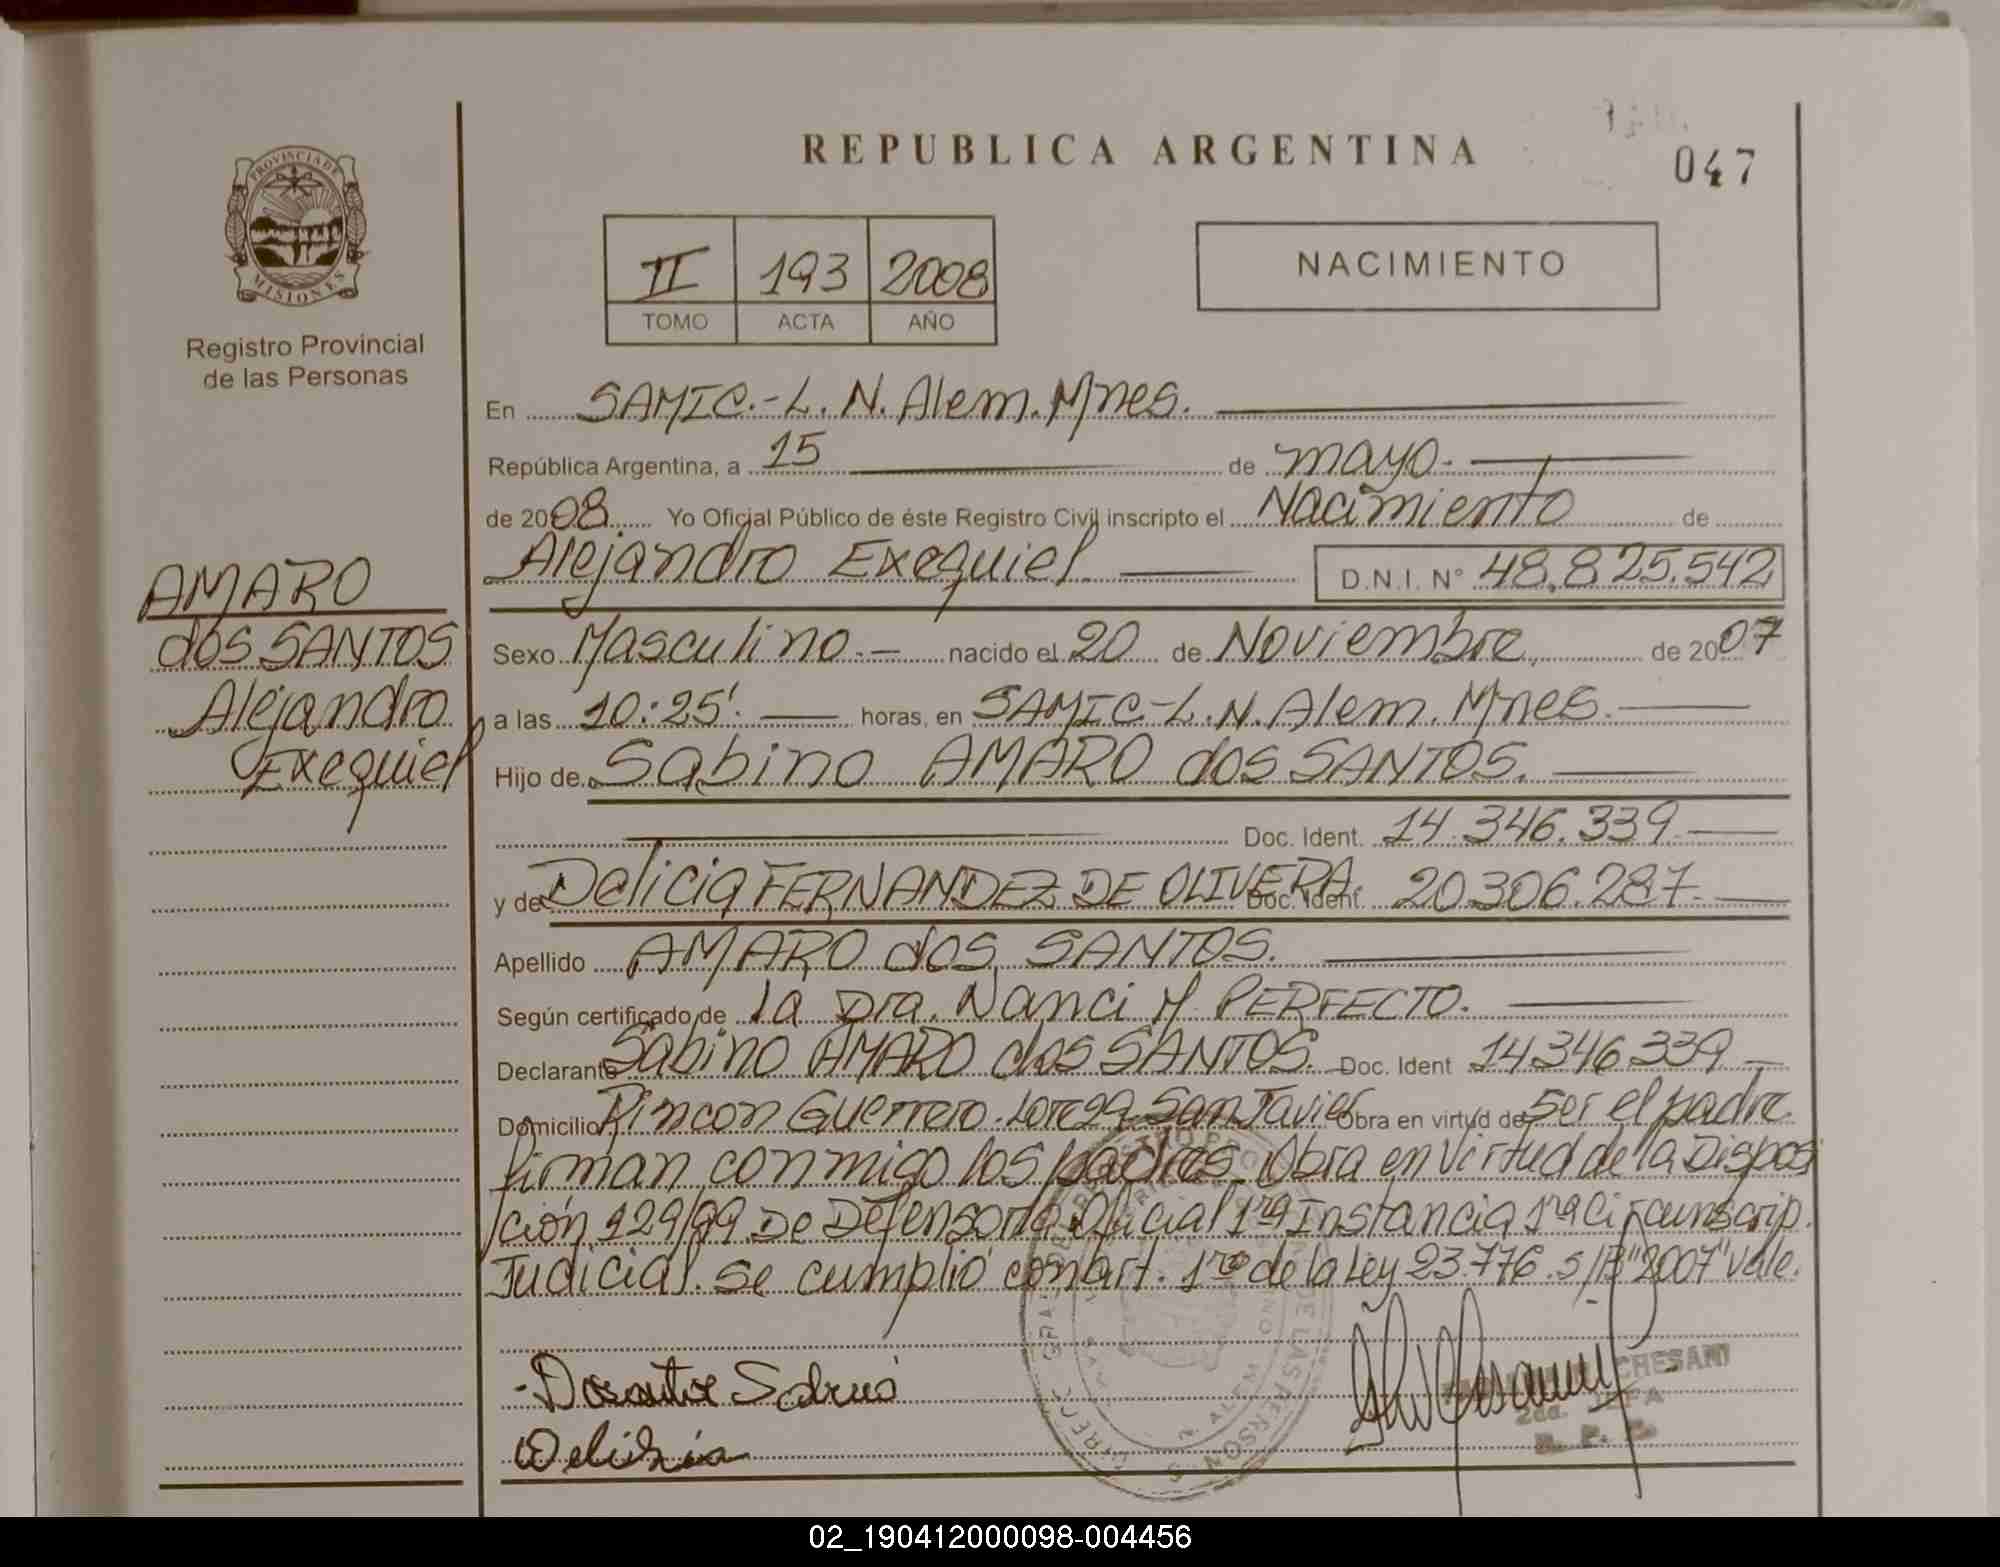 REPUBLICA ARGENTINA
047
PROVINCIA DE
MISIONES
Registro Provincial
de las Personas
II 193 2008
TOMO ACTA AÑO
NACIMIENTO
En SAMIC.-L. N. Alem. Mnes.
República Argentina, a 15 de mayo.
de 2008 Yo Oficial Público de éste Registro Civil inscripto el Nacimiento de
Alejandro Exequiel D.N.I. N° 48.825.542
AMARO
dos SANTOS
Alejandro
Exequiel
Sexo Masculino.- nacido el 20 de Noviembre, de 2007
a las 10:25'. horas, en SAMIC-L.N. Alem. Mnes.
Hijo de Sabino AMARO dos SANTOS.
Doc. Ident. 14.346.339
y de Delicia FERNANDEZ DE OLIVERA. Doc. Ident. 20.306.287.
Apellido AMARO dos SANTOS.
Según certificado de la Dra. Nanci M. PERFECTO.
Declarante Sabino AMARO dos SANTOS. Doc. Ident 14.346.339
Domicilio Rincon Guerrero. Lote 29. San Javier Obra en virtud de Ser el padre
firman conmigo los padres. Obra en Virtud de la Dispos
ición 129/99. De Defensoria Oficial 1ra Instancia 1ra Circunscrip.
Judicial. Se cumplió con art. 1ro de la Ley 23.776. S/B "2007" Vale.
Delicia
CRESANI
02_190412000098-004456